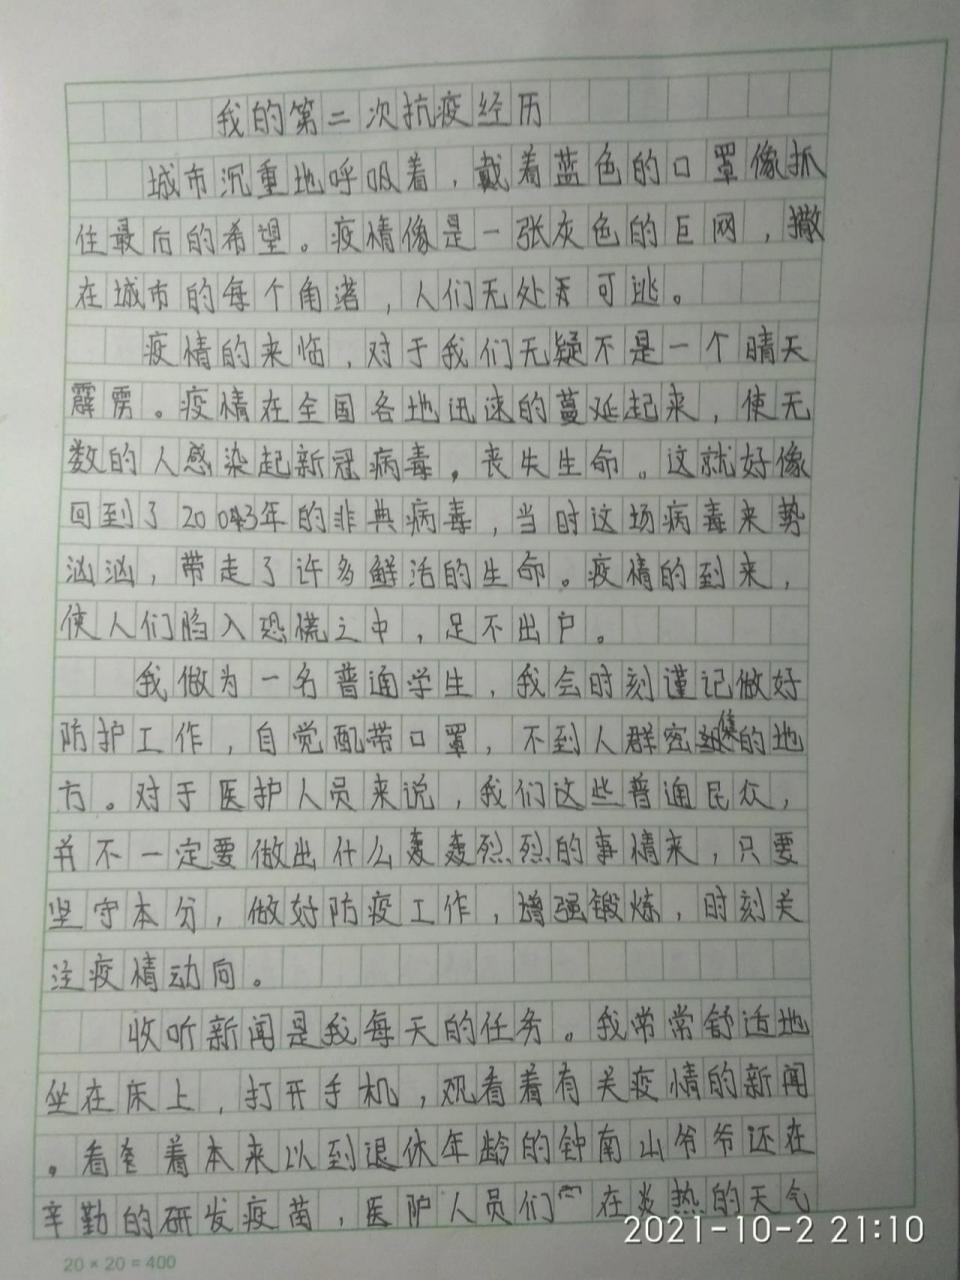 我的第二次抗疫经历
城市沉重地呼吸着，戴着蓝色的口罩像抓
住最后的希望。疫情像是一张灰色的巨网，撒
在城市的每个角落，人们无处可逃。
疫情的来临，对于我们无疑不是一个晴天
霹雳。疫情在全国各地迅速的蔓延起来，使无
数的人感染起新冠病毒，丧失生命。这就好像
回到了2003年的非典病毒，当时这场病毒来势
汹汹，带走了许多鲜活的生命。疫情的到来，
使人们陷入恐慌之中，足不出户。
我做为一名普通学生，我会时刻谨记做好
防护工作，自觉配带口罩，不到人群密集的地
方。对于医护人员来说，我们这些普通民众，
并不一定要做出什么轰轰烈烈的事情来，只要
坚守本分，做好防疫工作，增强锻炼，时刻关
注疫情动向。
收听新闻是我每天的任务。我常常舒适地
坐在床上，打开手机，观看着有关疫情的新闻
。看着本来以到退休年龄的钟南山爷爷还在
辛勤的研发疫苗，医护人员们在炎热的天气
2021-10-2 21:10
20×20=400